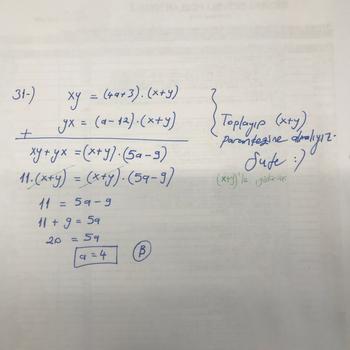 31-) xy = (4a+3).(x+y)
+ yx = (a-12).(x+y)
xy+yx = (x+y).(5a-9)
11.(x+y) = (x+y).(5a-9)
11 = 5a-9
11+9 = 5a
20 = 5a
a=4 B
Toplayıp (x+y)
parantezine almalıyız.
:)
(x+y)'ler